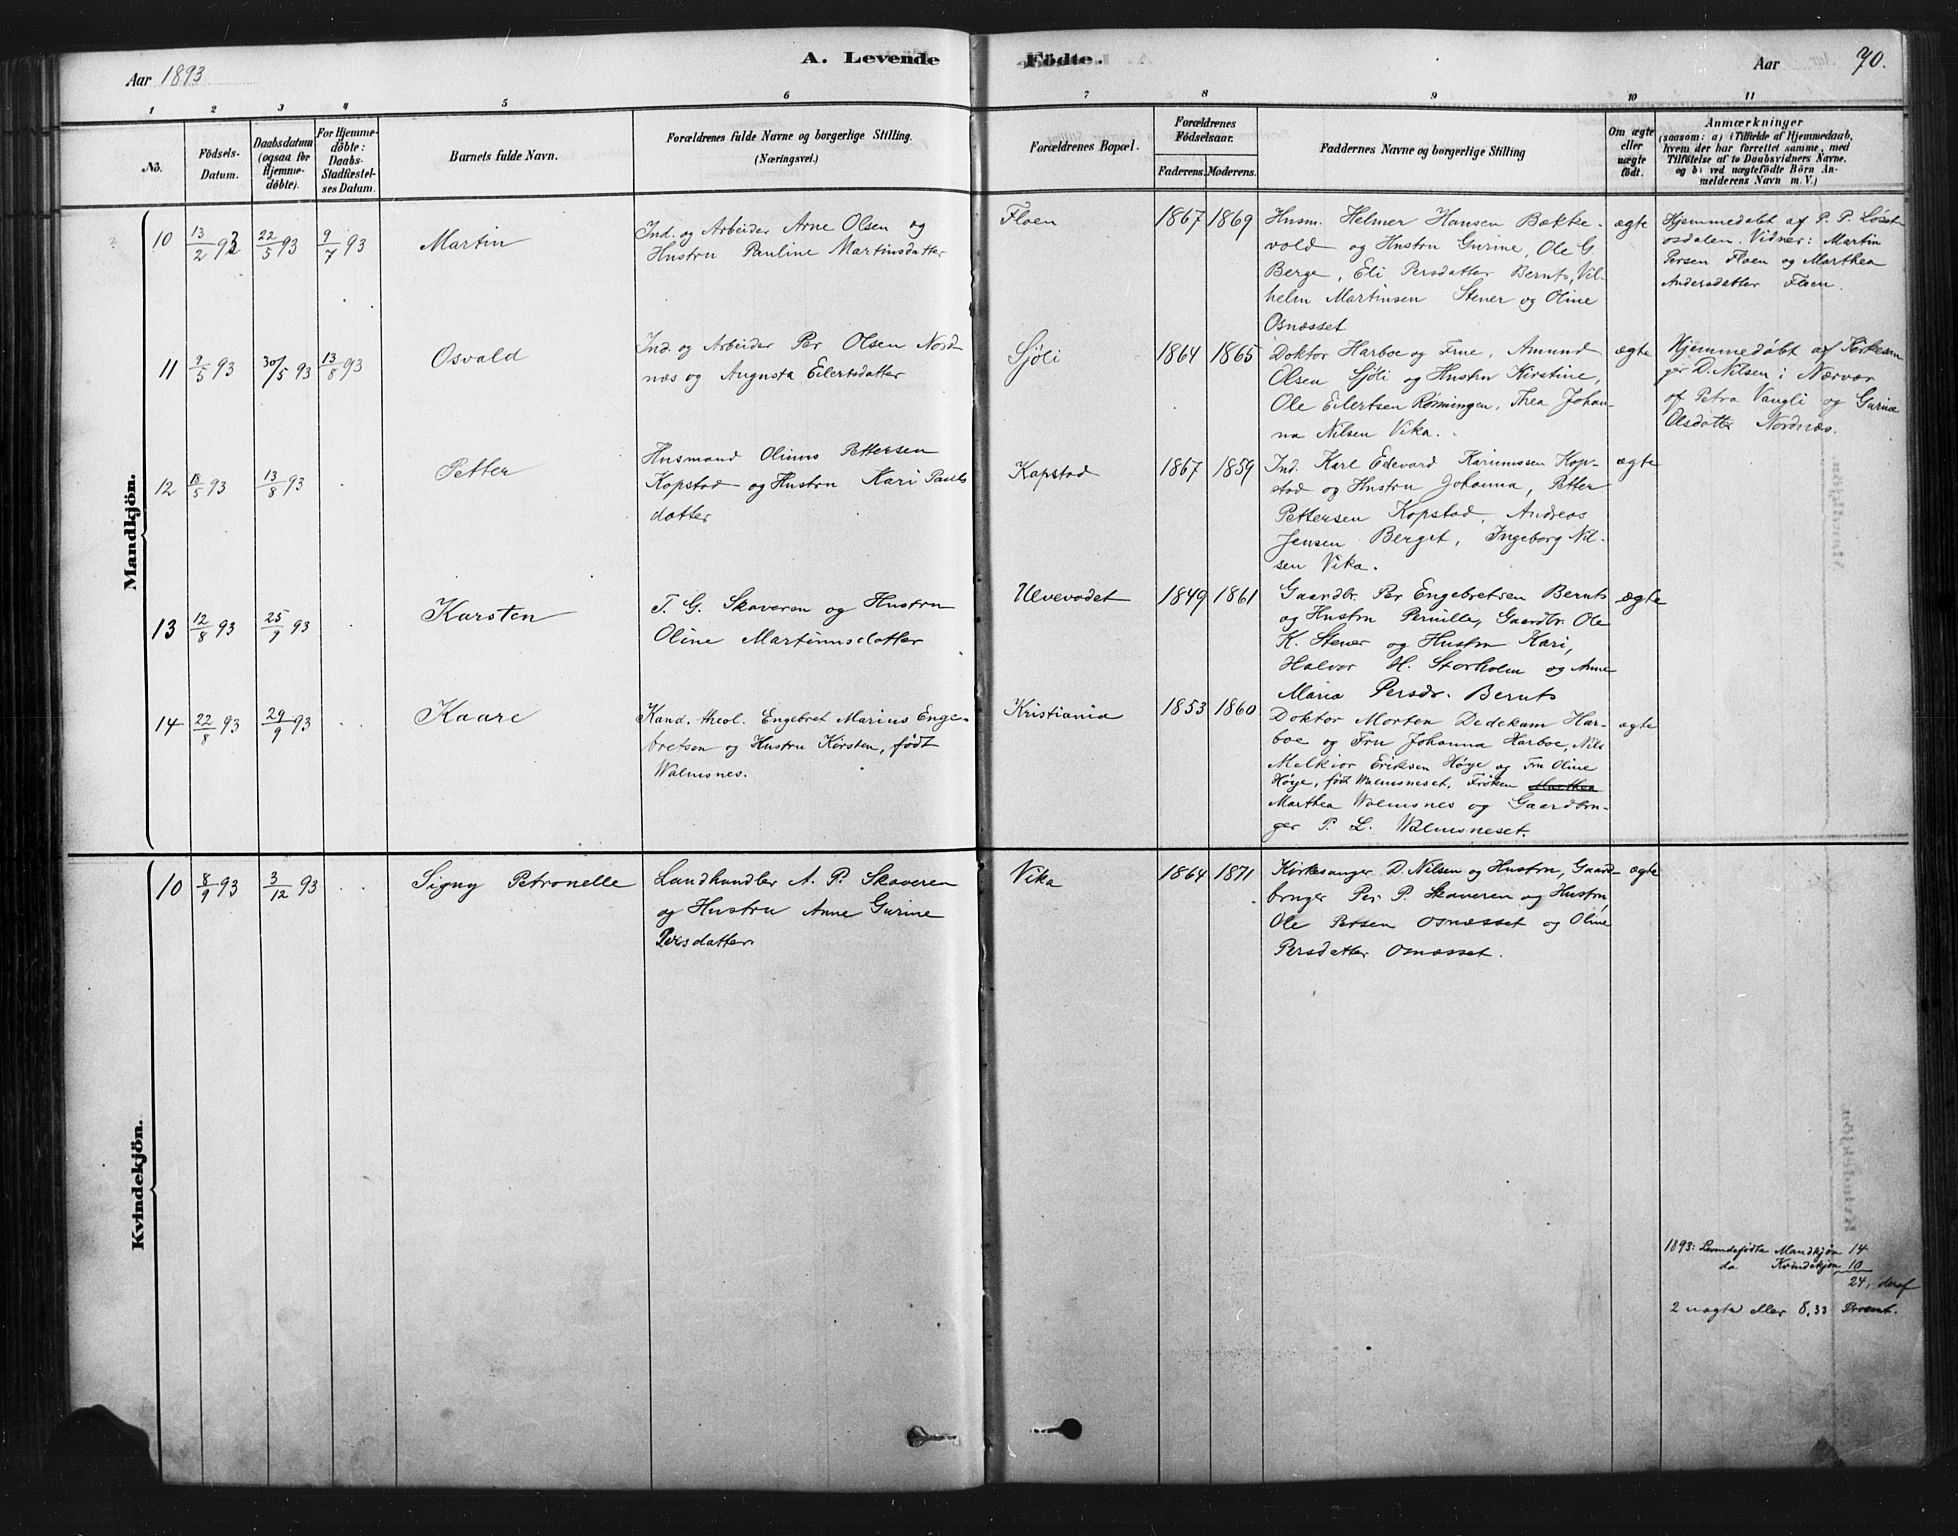 Aar 1893
A. Levende Födte.
Aar 70.
1 2 3 4 5 6 7 8 9 10 11
No.
Födsels-
Datum.
Daabsdatum
(ogsaa for
Hjemme-
døbte).
For Hjemme-
döbte:
Daabs-
Stadfæstel-
ses Datum.
Barnets fulde Navn.
Forældrenes fulde Navne og borgerlige Stilling.
(Næringsvei.)
Forældrenes Bopæl.
Forældrenes
Födselsaar.
Faderens. Moderens.
Faddernes Navne og borgerlige Stilling
Om ægte
eller
uægte
födt.
Anmærkninger
(saasom: a) i Tilfælde af Hjemmedaab,
hvem der har forrettet samme, med
Tilföielse af to Daabsvidners Navne.
og b) ved uægtefödte Börn An-
melderens Navn m. V.)
Mandkjön.
10 13/2 93 22/5 93 9/7 93 Martin
Ind. og Arbeider Arne Olsen og
Hustru Pauline Martinsdatter
Floen 1867 1869
Husm. Helmer Hansen Bække-
vold og Hustru Gurine, Ole G.
Berge, Eli Persdatter Bernts, Vil-
helm Martinsen Stener og Oline
Osnæsset
ægte
Hjemmedøbt af P. P. Løset
osdalen. Vidner: Martin
Persen Floen og Marthea
Andersdatter Floen.
11 9/5 93 30/5 93 13/8 93 Osvald
Ind. og Arbeider Per Olsen Nord-
næs og Augusta Eilertsdatter
Sjøli 1864 1865
Doktor Harboe og Frue, Amund
Olsen Sjöli og Hustru Kirstine,
Ole Eilertsen Rønningen, Thea Johan-
na Nilsen Vika.
ægte
Hjemmedøbt af Kirkesan
ger D. Nilsen i Nærvær
af Petra Vangli og Gurine
Olsdatter Nordnæs.
12 18/5 93 13/8 93 Petter
Husmand Olinus Pettersen
Kopstad og Hustru Kari Pauls
datter
Kopstad 1867 1859
Ind. Karl Edevard Karinussen Kop-
stad og Hustru Johanna, Petter
Pettersen Kopstad, Andreas
Jensen Berget, Ingeborg Nil-
sen Vika.
ægte
13 12/8 93 25/9 93 Karsten
T. G. Skaveren og Hustru
Oline Martinusdatter
Ulvevadet 1849 1861
Gaardbr. Per Engebretsen Bernts
og Hustru Pernille, Gaardbr. Ole
K. Stener og Hustru Kari,
Halvor H. Storholm og Anne
Maria Persdr. Bernts
ægte
14 22/8 93 29/9 93 Kaare
Kand. theol. Engebret Marius Enge-
bretsen og Hustru Kirsten, født
Walmsnes.
Kristiania 1853 1860
Doktor Morten Dedekam Har-
boe og Fru Johanna Harboe, Nils
Melkior Eriksen Høye og Fru Oline
Høye, født Walmsneset, Frøken Marthea
Marthea Walmsnes og Gaardbru-
ger P. L. Walmsneset.
ægte
Kvindekjön.
10 8/9 93 3/12 93 Signy Petronelle
Landhandler A. P. Skaveren
og Hustru Anne Gurine
Persdatter
Vika 1864 1871
Kirkesanger D. Nilsen og Hustru, Gaard-
bruger Per P. Skaveren og Hustru,
Ole Persen Osnæsset og Oline
Persdatter Osnæsset.
ægte
1893: Levendefødte Mandkjøn 14
do Kvindekjøn 10
24, deraf
2 uægte eller 8,33 Procent.